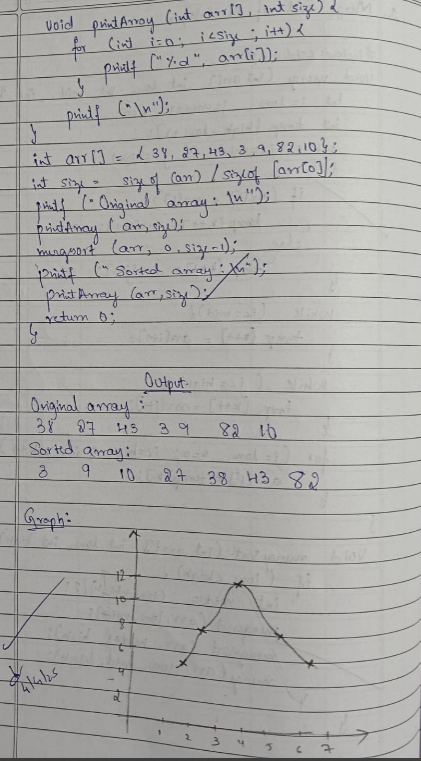 void printArray (int arr[], int size) {
for (int i=0; i<size ; i++) {
printf ("%d", arr[i]);
}
printf ("\n");
}
int arr[] = { 38, 27, 43, 3, 9, 82, 10 };
int size = size of (arr) / sizeof [arr[0]];
printf ("Original array: \n");
printArray ( arr, size);
mergesort (arr, 0, size-1);
printf (" Sorted array : \n");
printArray (arr, size);
return 0;
}
Output
Original array :
38 27 43 3 9 82 10
Sorted array:
3 9 10 27 38 43 82
Graph:
12
10
8
6
4
2
1 2 3 4 5 6 7